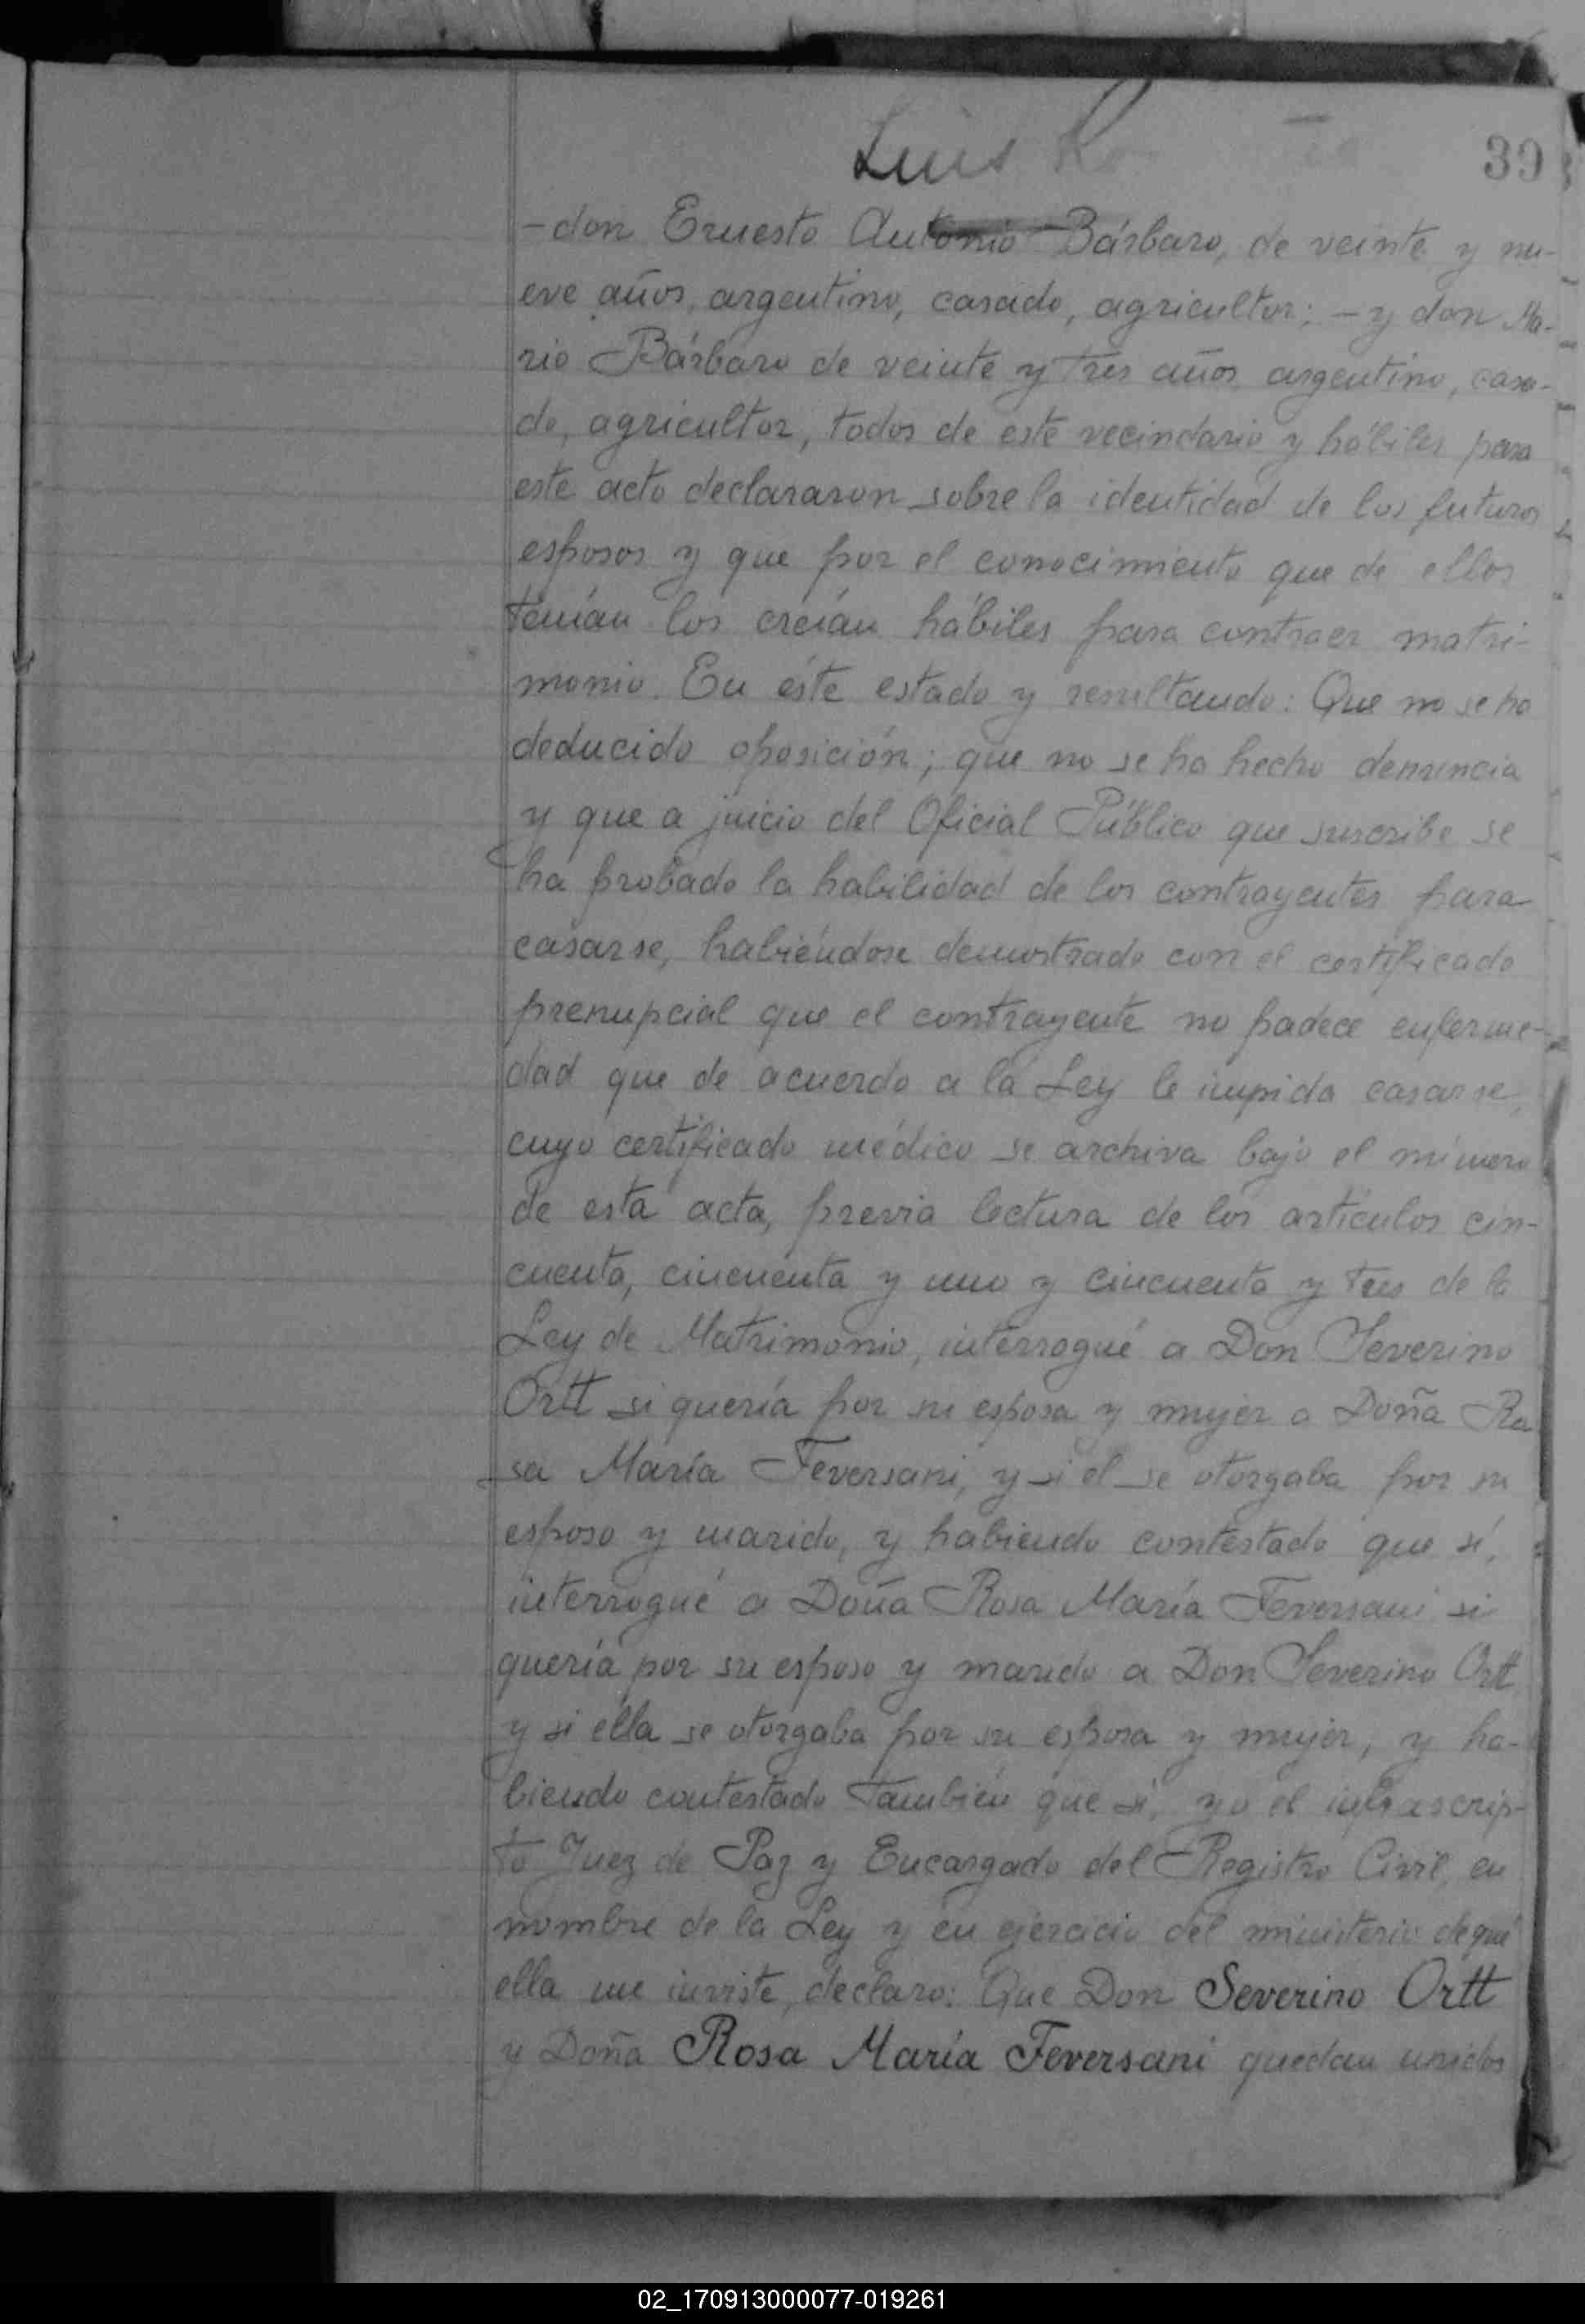 Luis
39
- don Ernesto Antonio Bárbaro, de veinte y nu-
eve años, argentino, casado, agricultor; - y don Ma-
rio Bárbaro de veinte y tres años argentino, casa-
do, agricultor, todos de este vecindario y hábiles para
este acto declararon sobre la identidad de los futuros
esposos y que por el conocimiento que de ellos
tenían los creían hábiles para contraer matri-
monio. En éste estado y resultando: Que no se ha
deducido oposición; que no se ha hecho denuncia
y que a juicio del Oficial Público que suscribe se
ha probado la habilidad de los contrayentes para
casarse, habiéndose demostrado con el certificado
prenupcial que el contrayente no padece enferme-
dad que de acuerdo a la Ley le impida casarse,
cuyo certificado médico se archiva bajo el número
de esta acta, previa lectura de los artículos cin-
cuenta, cincuenta y uno y cincuenta y tres de la
Ley de Matrimonio, interrogué a Don Severino
Ortt si quería por su esposa y mujer a Doña Ro
sa María Feversani, y si el se otorgaba por su
esposo y marido, y habiendo contestado que sí,
interrogué a Doña Rosa María Feversani si
quería por su esposo y marido a Don Severino Ortt
y si ella se otorgaba por su esposa y mujer, y ha-
biendo contestado también que sí, yo el infrascrip-
to Juez de Paz y Encargado del Registro Civil, en
nombre de la Ley y en ejercicio del ministerio de qué
ella me inviste, declaro: Que Don Severino Ortt
y Doña Rosa María Feversani quedan unidos
02_170913000077-019261